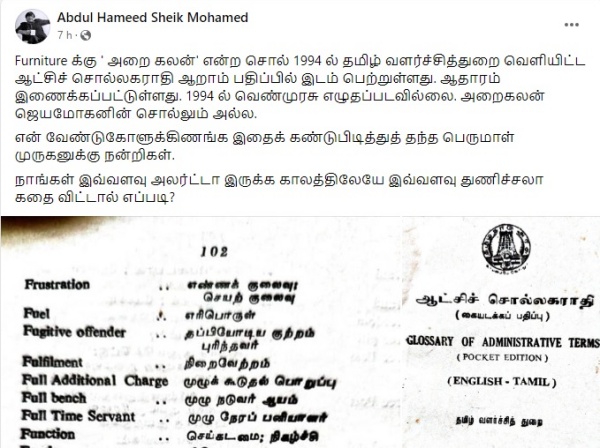 Abdul Hameed Sheik Mohamed
7 h ·
Furniture க்கு ' அறை கலன்' என்ற சொல் 1994 ல் தமிழ் வளர்ச்சித்துறை வெளியிட்ட
ஆட்சிச் சொல்லகராதி ஆறாம் பதிப்பில் இடம் பெற்றுள்ளது. ஆதாரம்
இணைக்கப்பட்டுள்ளது. 1994 ல் வெண்முரசு எழுதப்படவில்லை. அறைகலன்
ஜெயமோகனின் சொல்லும் அல்ல.
என் வேண்டுகோளுக்கிணங்க இதைக் கண்டுபிடித்துத் தந்த பெருமாள்
முருகனுக்கு நன்றிகள்.
நாங்கள் இவ்வளவு அலர்ட்டா இருக்க காலத்திலேயே இவ்வளவு துணிச்சலா
கதை விட்டால் எப்படி?
102
Frustration .. எண்ணக் குலைவு;
செயற் குலைவு
Fuel .. எரிபொருள்
Fugitive offender .. தப்பியோடிய குற்றம்
புரிந்தவர்
Fulfilment .. நிறைவேற்றம்
Full Additional Charge .. முழுக் கூடுதல் பொறுப்பு
Full bench .. முழு நடுவர் ஆயம்
Full Time Servant .. முழு நேரப் பணியாளர்
Function .. செய்கடமை; நிகழ்ச்சி
ஆட்சிச் சொல்லகராதி
(கையடக்கப் பதிப்பு)
GLOSSARY OF ADMINISTRATIVE TERMS
(POCKET EDITION)
(ENGLISH - TAMIL)
தமிழ் வளர்ச்சித் துறை